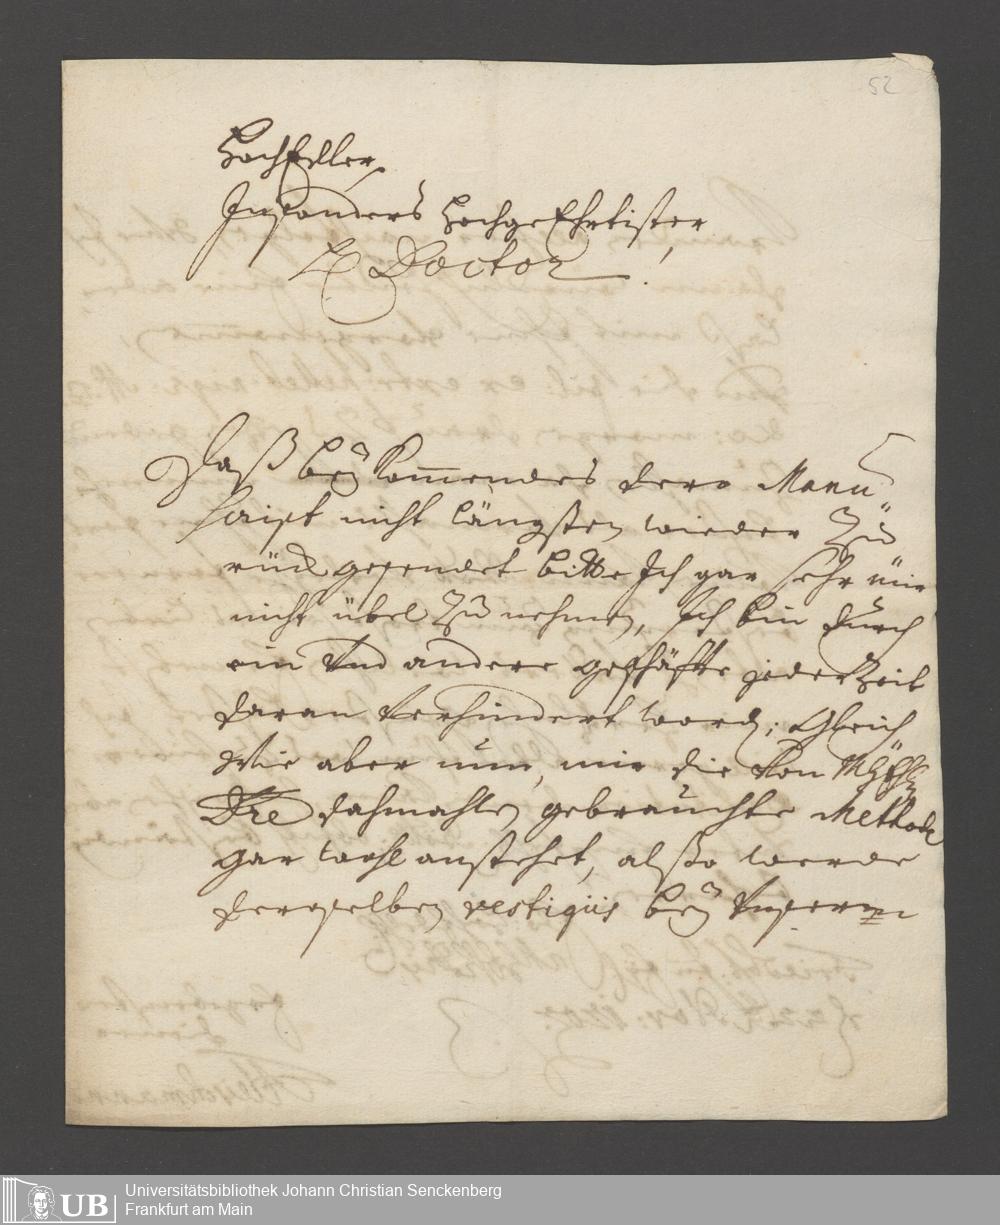 52
HochEdler,
Insonders HochgeEhrtister
H Doctor.
Daß beÿ Kommendes dero Manu-
script nicht längsten wieder Zu
rück gesendet bitte Ich gar sehr mir
nicht übel Zu nehmen, Ich bin durch
ein Vnd andere geschäffte jederZeit
daran Verhindert word; Gleich
Wie aber nun, mir die Von
dahmahlen gebrauchte Methode
gar wohl anstehet, alßo werde
derselben vestigiis beÿ Vnserm
UB
Universitätsbibliothek Johann Christian Senckenberg
Frankfurt am Main